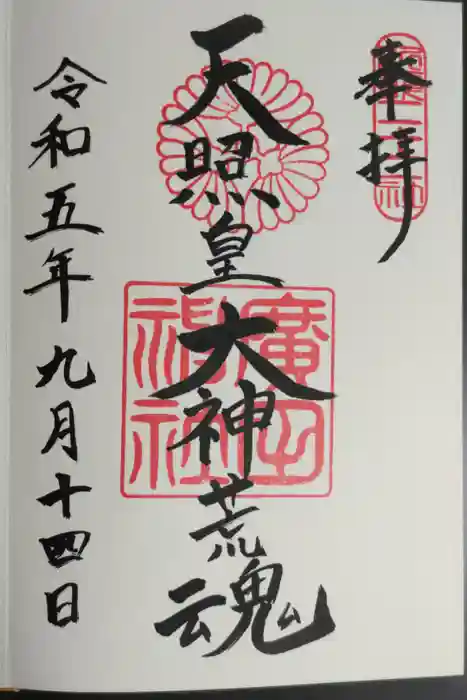 奉拝
天照皇大神荒魂
廣田
神社
令和五年九月十四日